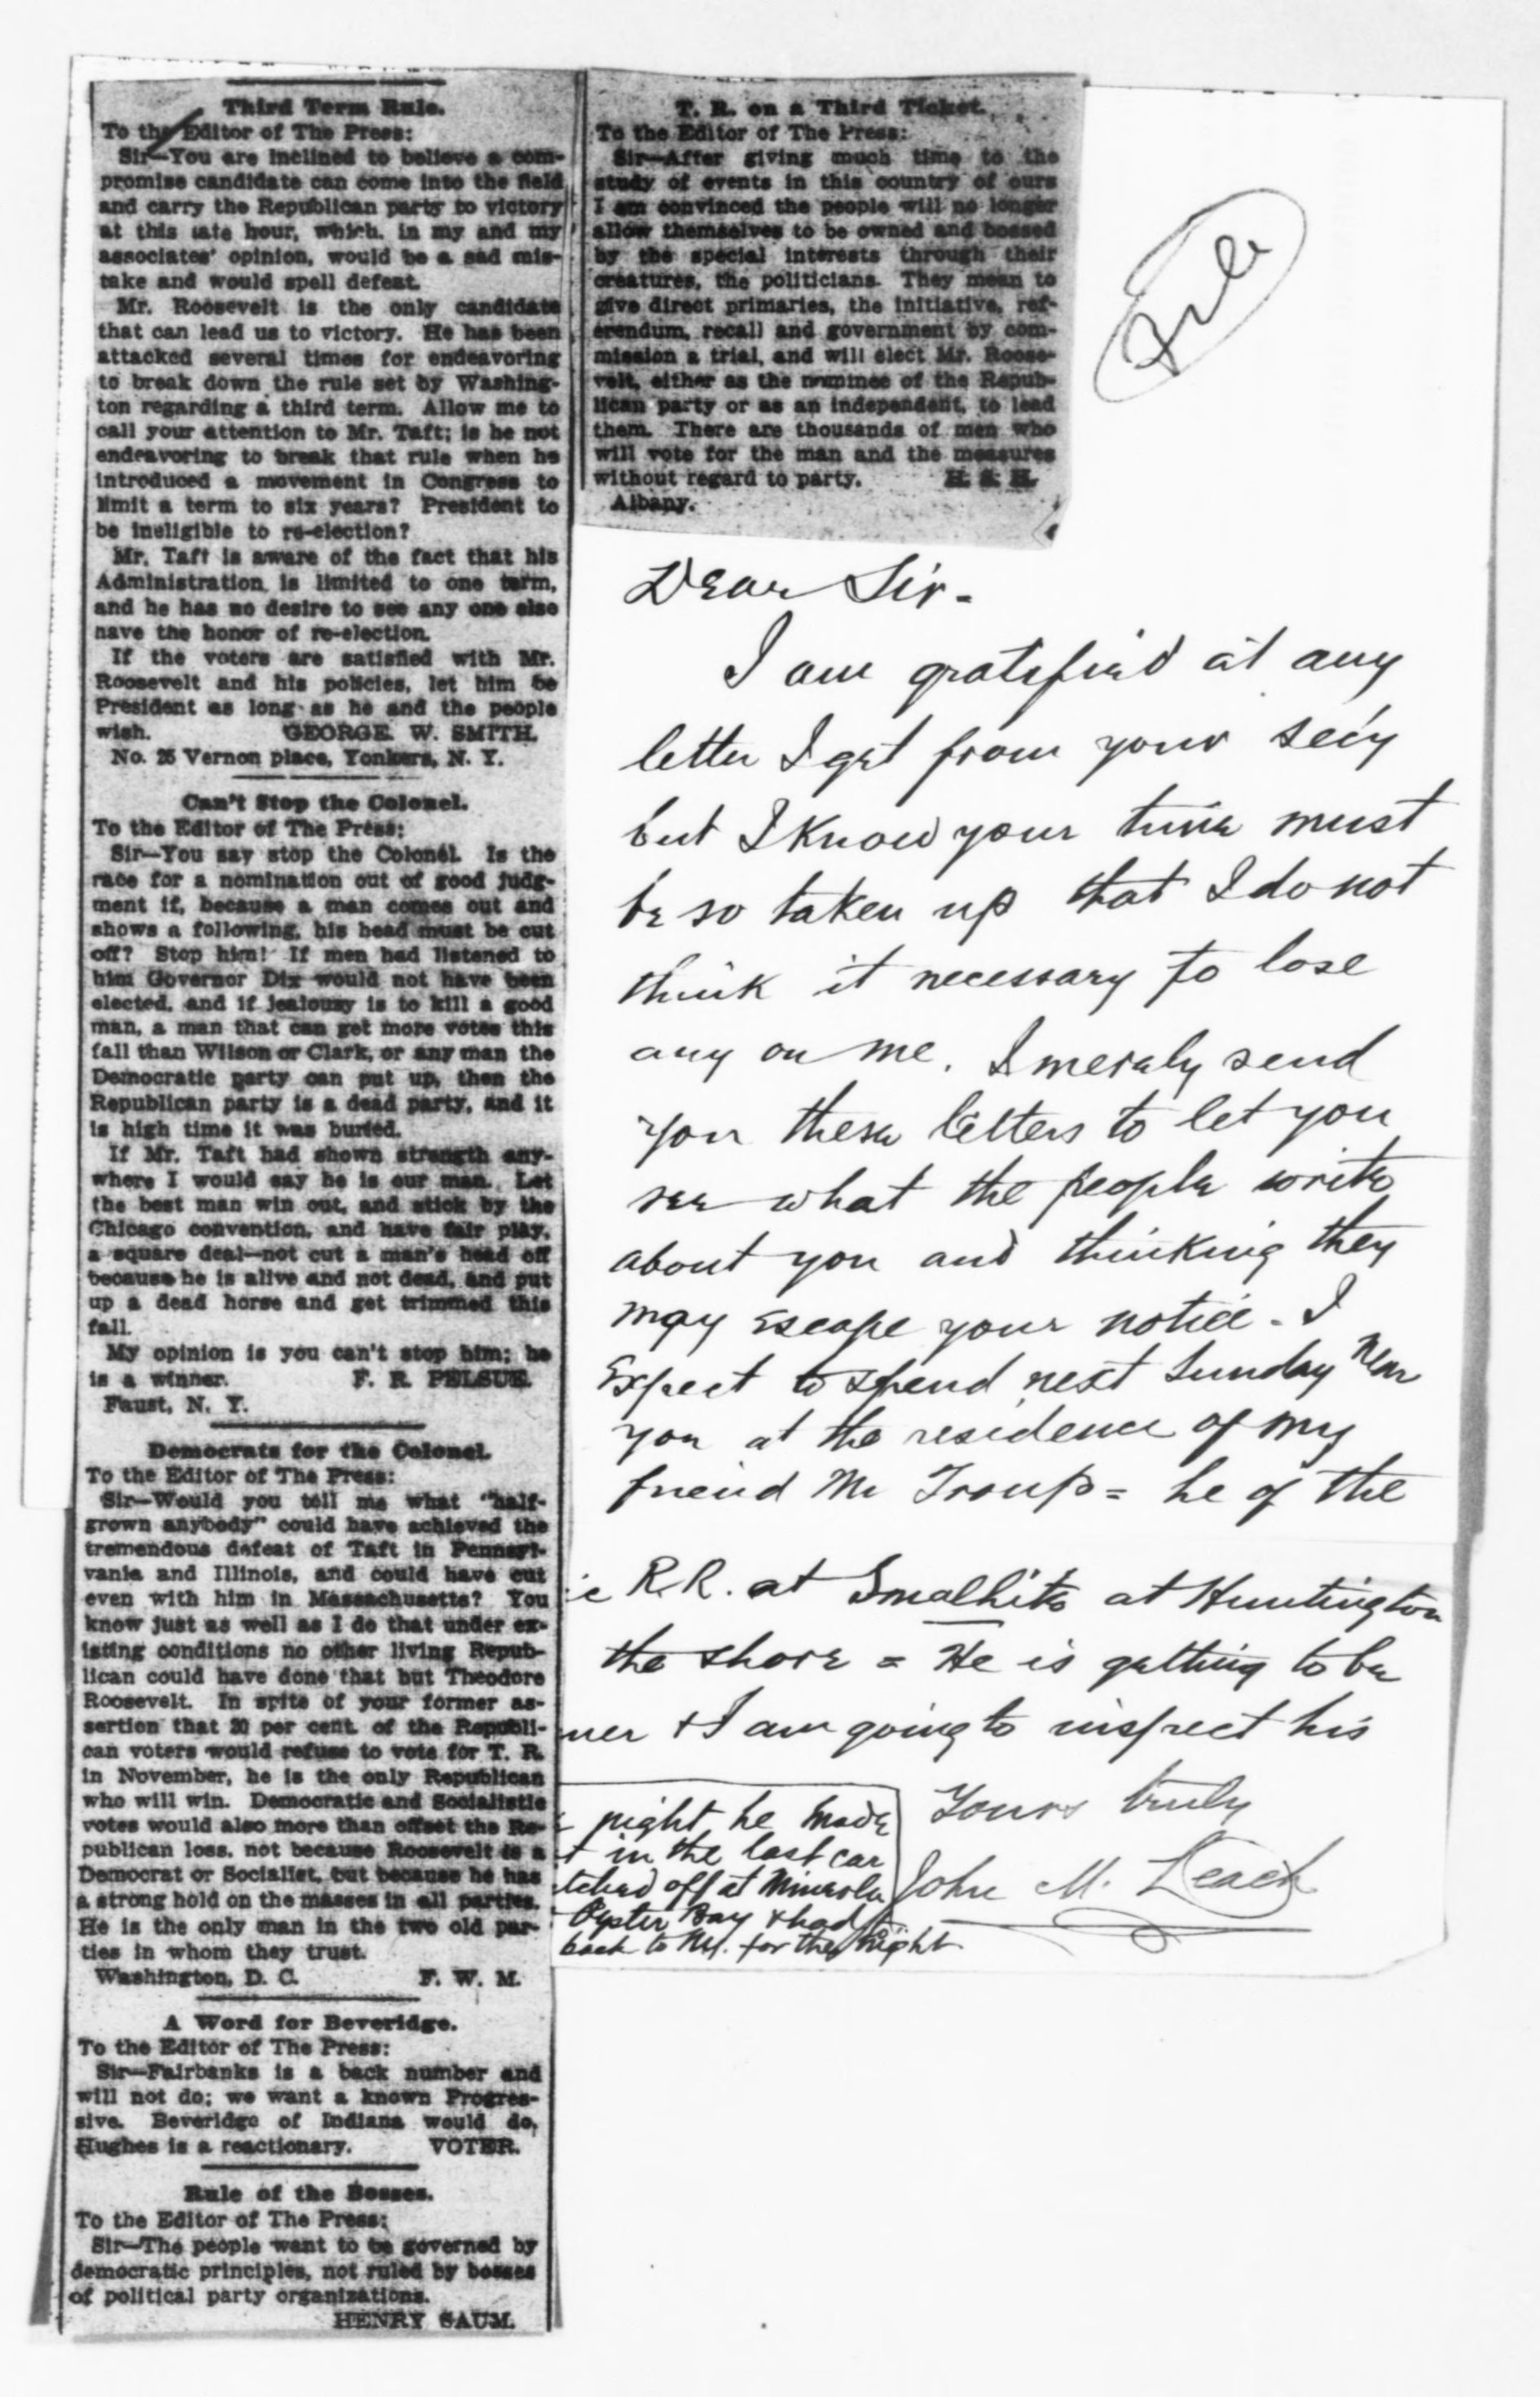 Third Term Rule.
To the Editor of The Press:
Sir—You are inclined to believe a com-
promise candidate can come into the field
and carry the Republican party to victory
at this late hour, which, in my and my
associates' opinion, would be a sad mis-
take and would spell defeat.
Mr. Roosevelt is the only candidate
that can lead us to victory. He has been
attacked several times for endeavoring
to break down the rule set by Washing-
ton regarding a third term. Allow me to
call your attention to Mr. Taft; is he not
endeavoring to break that rule when he
introduced a movement in Congress to
limit a term to six years? President to
be ineligible to re-election?
Mr. Taft is aware of the fact that his
Administration is limited to one term,
and he has no desire to see any one else
have the honor of re-election.
If the voters are satisfied with Mr.
Roosevelt and his policies, let him be
President as long as he and the people
wish. GEORGE W. SMITH.
No. 25 Vernon place, Yonkers, N. Y.
Can't Stop the Colonel.
To the Editor of The Press:
Sir—You say stop the Colonel. Is the
race for a nomination out of good judg-
ment if, because a man comes out and
shows a following, his head must be cut
off? Stop him! If men had listened to
him Governor Dix would not have been
elected, and if jealousy is to kill a good
man, a man that can get more votes this
fall than Wilson or Clark, or any man the
Democratic party can put up, then the
Republican party is a dead party, and it
is high time it was buried.
If Mr. Taft had shown strength any-
where I would say he is our man. Let
the best man win out, and stick by the
Chicago convention, and have fair play,
a square deal—not cut a man's head off
because he is alive and not dead, and put
up a dead horse and get trimmed this
fall.
My opinion is you can't stop him; he
is a winner. F. R. PELSUE.
Faust, N. Y.
Democrats for the Colonel.
To the Editor of The Press:
Sir—Would you tell me what "half-
grown anybody" could have achieved the
tremendous defeat of Taft in Pennsyl-
vania and Illinois, and could have cut
even with him in Massachusetts? You
know just as well as I do that under ex-
isting conditions no other living Repub-
lican could have done that but Theodore
Roosevelt. In spite of your former as-
sertion that 20 per cent. of the Republi-
can voters would refuse to vote for T. R.
in November, he is the only Republican
who will win. Democratic and Socialistic
votes would also more than offset the Re-
publican loss, not because Roosevelt is a
Democrat or Socialist, but because he has
a strong hold on the masses in all parties.
He is the only man in the two old par-
ties in whom they trust.
Washington, D. C. F. W. M.
A Word for Beveridge.
To the Editor of The Press:
Sir—Fairbanks is a back number and
will not do; we want a known Progres-
sive. Beveridge of Indiana would do,
Hughes is a reactionary. VOTER.
Rule of the Bosses.
To the Editor of The Press:
Sir—The people want to be governed by
democratic principles, not ruled by bosses
of political party organizations.
HENRY SAUM.
T. R. on a Third Ticket.
To the Editor of The Press:
Sir—After giving much time to the
study of events in this country of ours
I am convinced the people will no longer
allow themselves to be owned and bossed
by the special interests through their
creatures, the politicians. They mean to
give direct primaries, the initiative, ref-
erendum, recall and government by com-
mission a trial, and will elect Mr. Roose-
velt, either as the nominee of the Repub-
lican party or as an independent, to lead
them. There are thousands of men who
will vote for the man and the measures
without regard to party. H. S. H.
Albany.
File
Dear Sir -
I am gratified at any
letter I get from your sec'y
but I know your time must
be so taken up that I do not
think it necessary to lose
any on me. I merely send
you these letters to let you
see what the people write
about you and thinking they
may escape your notice - I
Expect to spend next Sunday near
you at the residence of my
friend Mr Troup = he of the
R.R. at at Huntington
the shore = He is getting to be
& I am going to inspect his
Yours truly
John M. Leach
night he made
in the last car
off at Mineola
Oyster Bay & had
back to NY. for the night